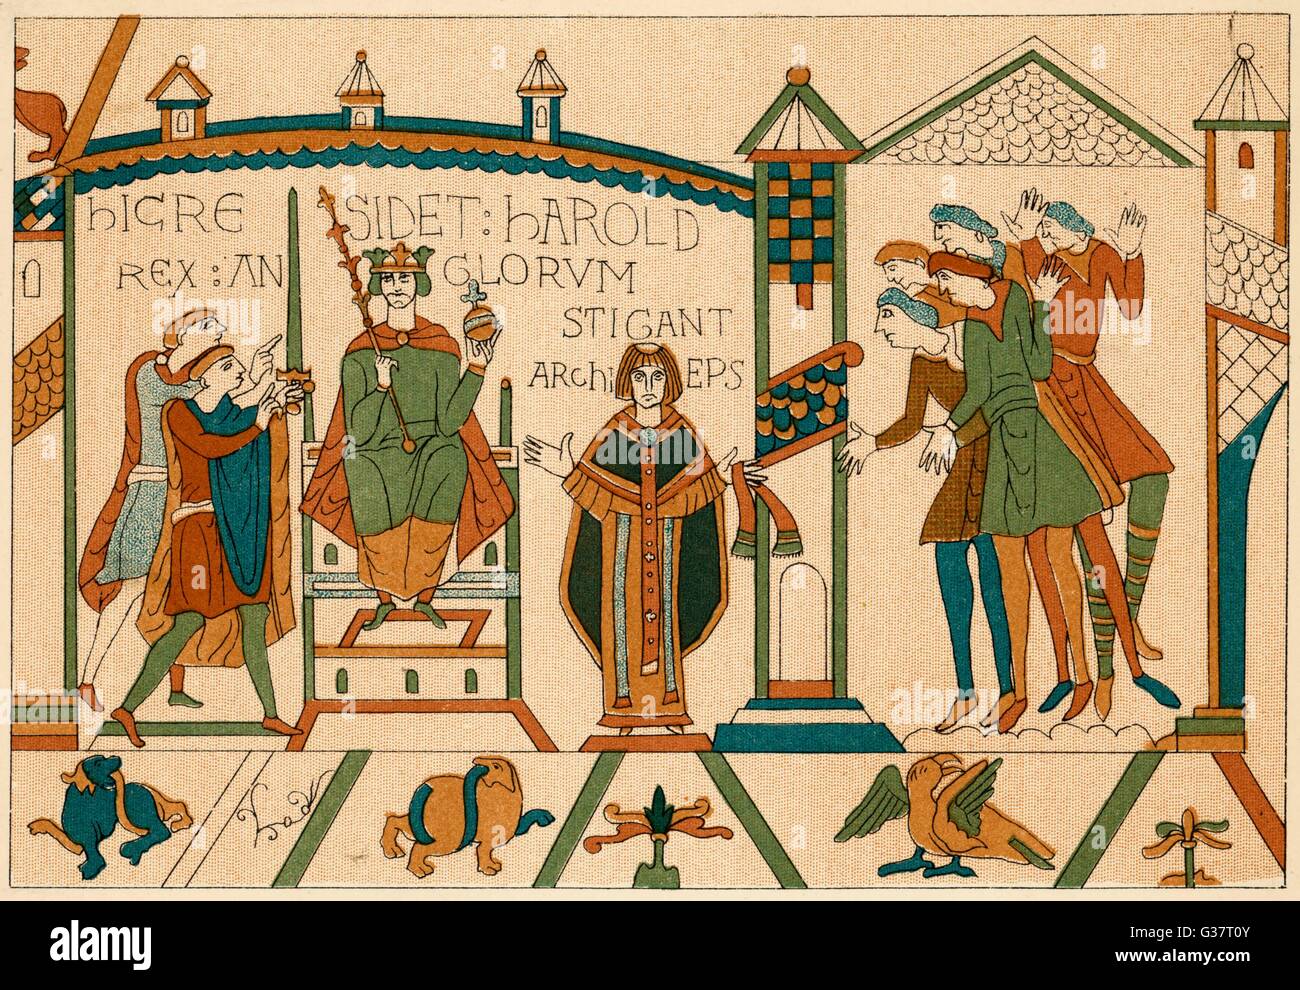 hIC RE SIDET: hAROLD
REX: ANGLORVM
STIGANT
ARChI EPS
alamy
Image ID: G37T0Y
www.alamy.com